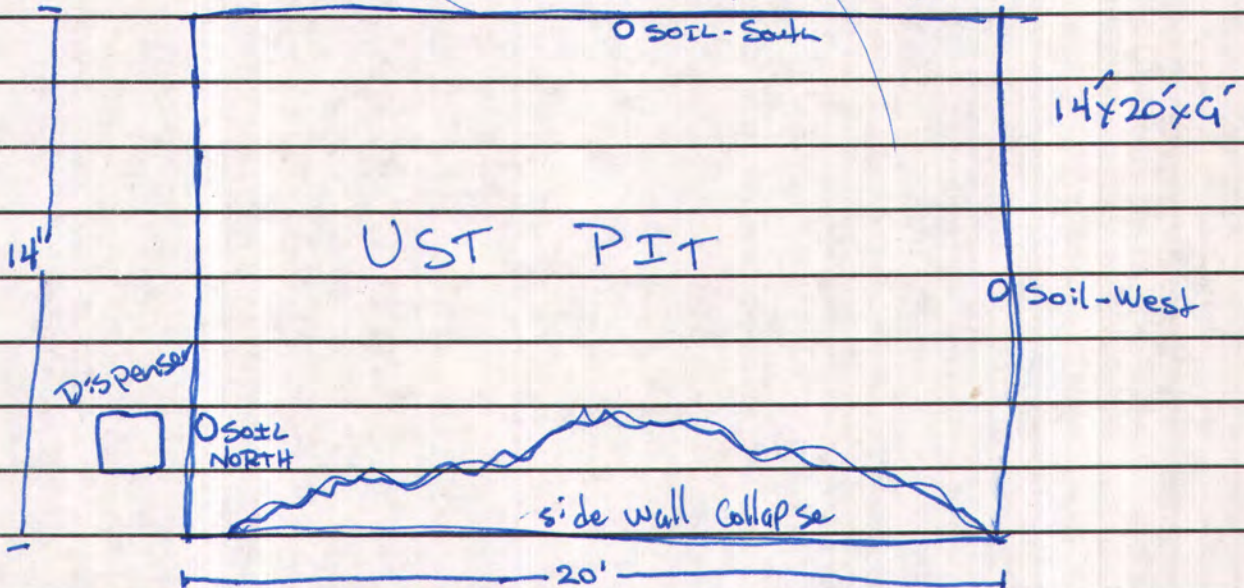 O SOIL-South
14'x20'x9'
14'
UST PIT
O Soil-West
Dispenser
O SOIL
NORTH
side wall Collapse
20'